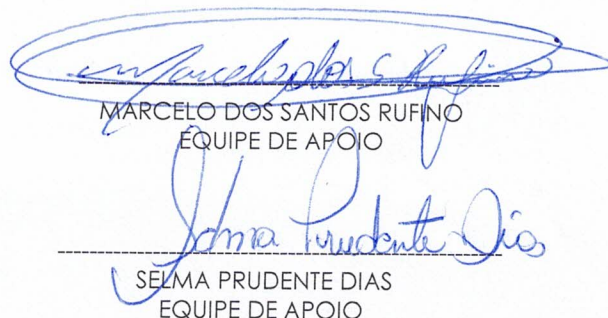 Marcelo dos S Rufino
MARCELO DOS SANTOS RUFINO
EQUIPE DE APOIO
Selma Prudente Dias
SELMA PRUDENTE DIAS
EQUIPE DE APOIO